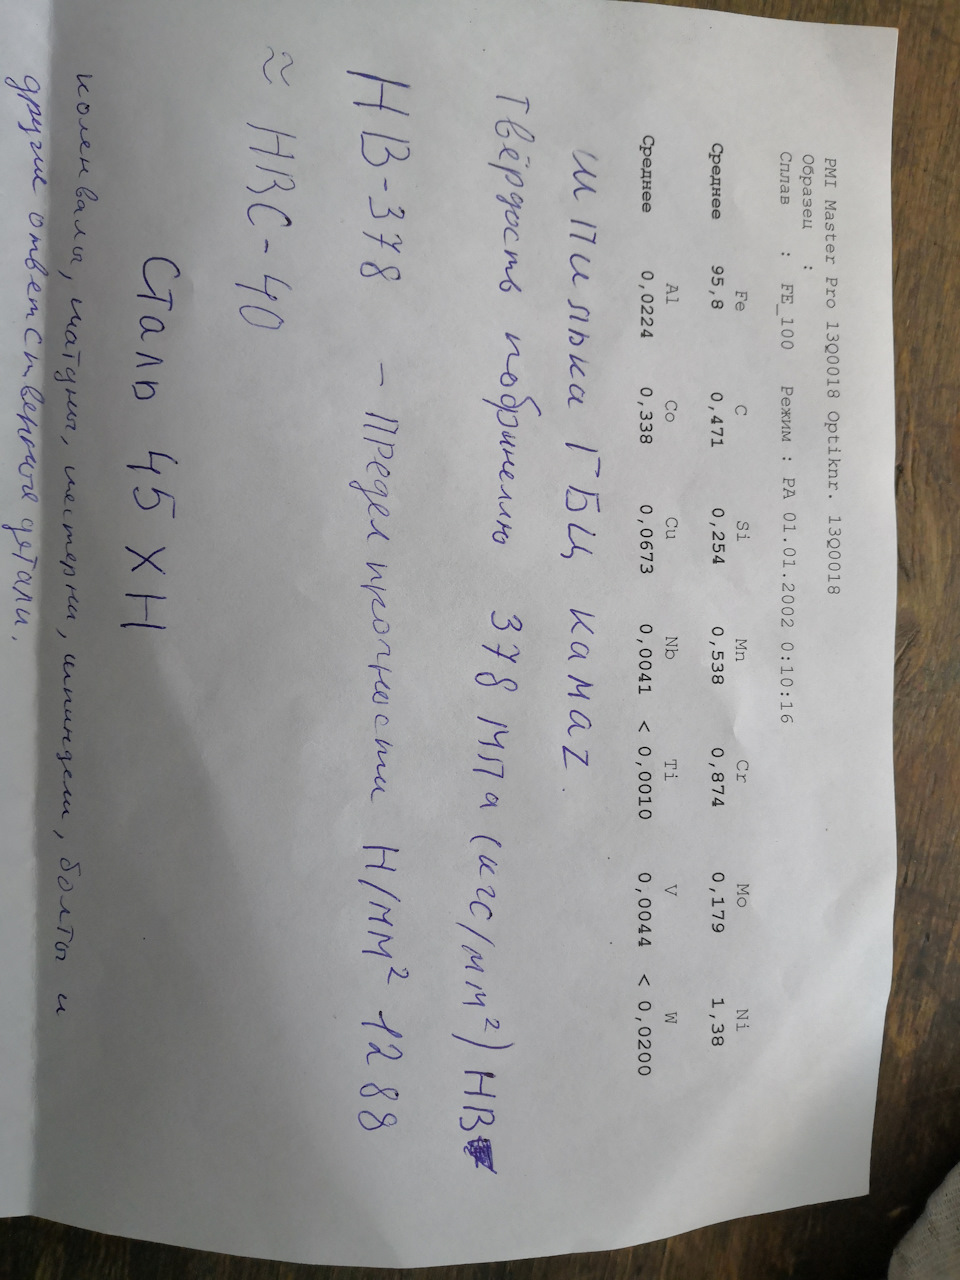 PMI Master Pro 13Q0018 Optiknr. 13Q0018
Образец :
Сплав : FE_100 Режим : PA 01.01.2002 0:10:16
Fe C Si Mn Cr Mo Ni
Среднее 95,8 0,471 0,254 0,538 0,874 0,179 1,38
Al Co Cu Nb Ti V W
Среднее 0,0224 0,338 0,0673 0,0041 < 0,0010 0,0044 < 0,0200
шпилька ГБЦ камаz
твёрдость по бринеллю 378 МПа (кгс/мм²) НВ
НВ-378 - предел прочности Н/мм² 1288
≈ НRC-40
Сталь 45 ХН
коленвалы, шатуны, шестерни, шпиндели, болты и
другие ответственные детали.